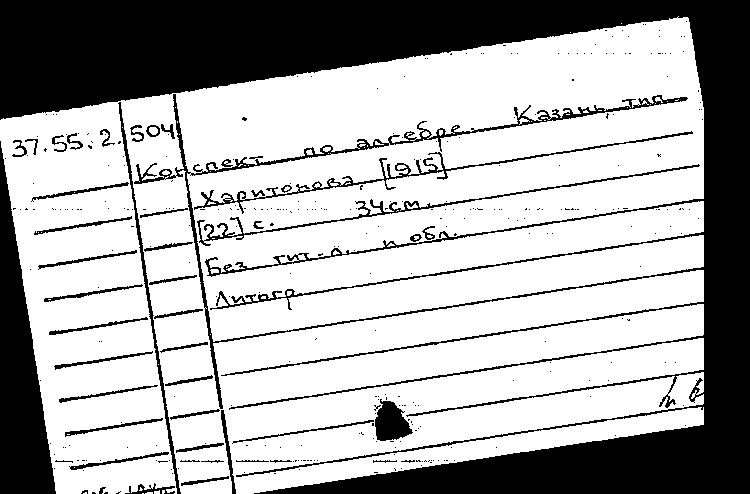 37.55.2.504
Конспект по алгебре. Казань, тип.
Харитонова, [1915]
[22] с. 34см.
Без тит. л. и обл.
Литогр.